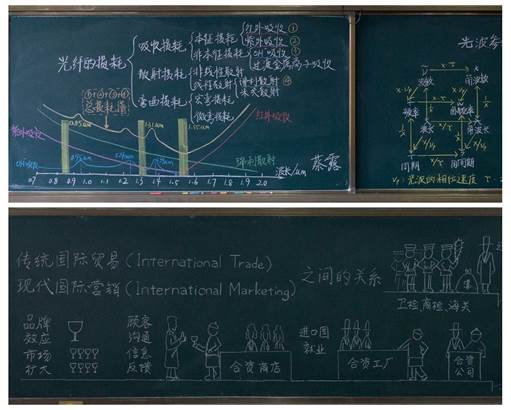 光纤的损耗
吸收损耗
本征损耗
红外吸收①
紫外吸收②
非本征损耗
OH吸收③
过渡金属离子吸收
散射损耗
非线性散射
线性散射
瑞利散射④
米氏散射
弯曲损耗
宏弯损耗
微弯损耗
①+②+③+④
总损耗谱
0.85um
1.31um
1.55um
紫外吸收
红外吸收
OH吸收
瑞利散射
波长/um
0.7 0.8 0.9 1.0 1.1 1.2 1.3 1.4 1.5 1.6 1.7 1.8 1.9 2.0
蔡露
光波参
频率
周期
光波的相位速度
传统国际贸易(International Trade)
现代国际营销(International Marketing)
之间的关系
卫检,商检,海关
品牌
效应
市场
扩大
顾客
沟通
信息
反馈
合资商店
进口国
就业
合资工厂
合资
公司